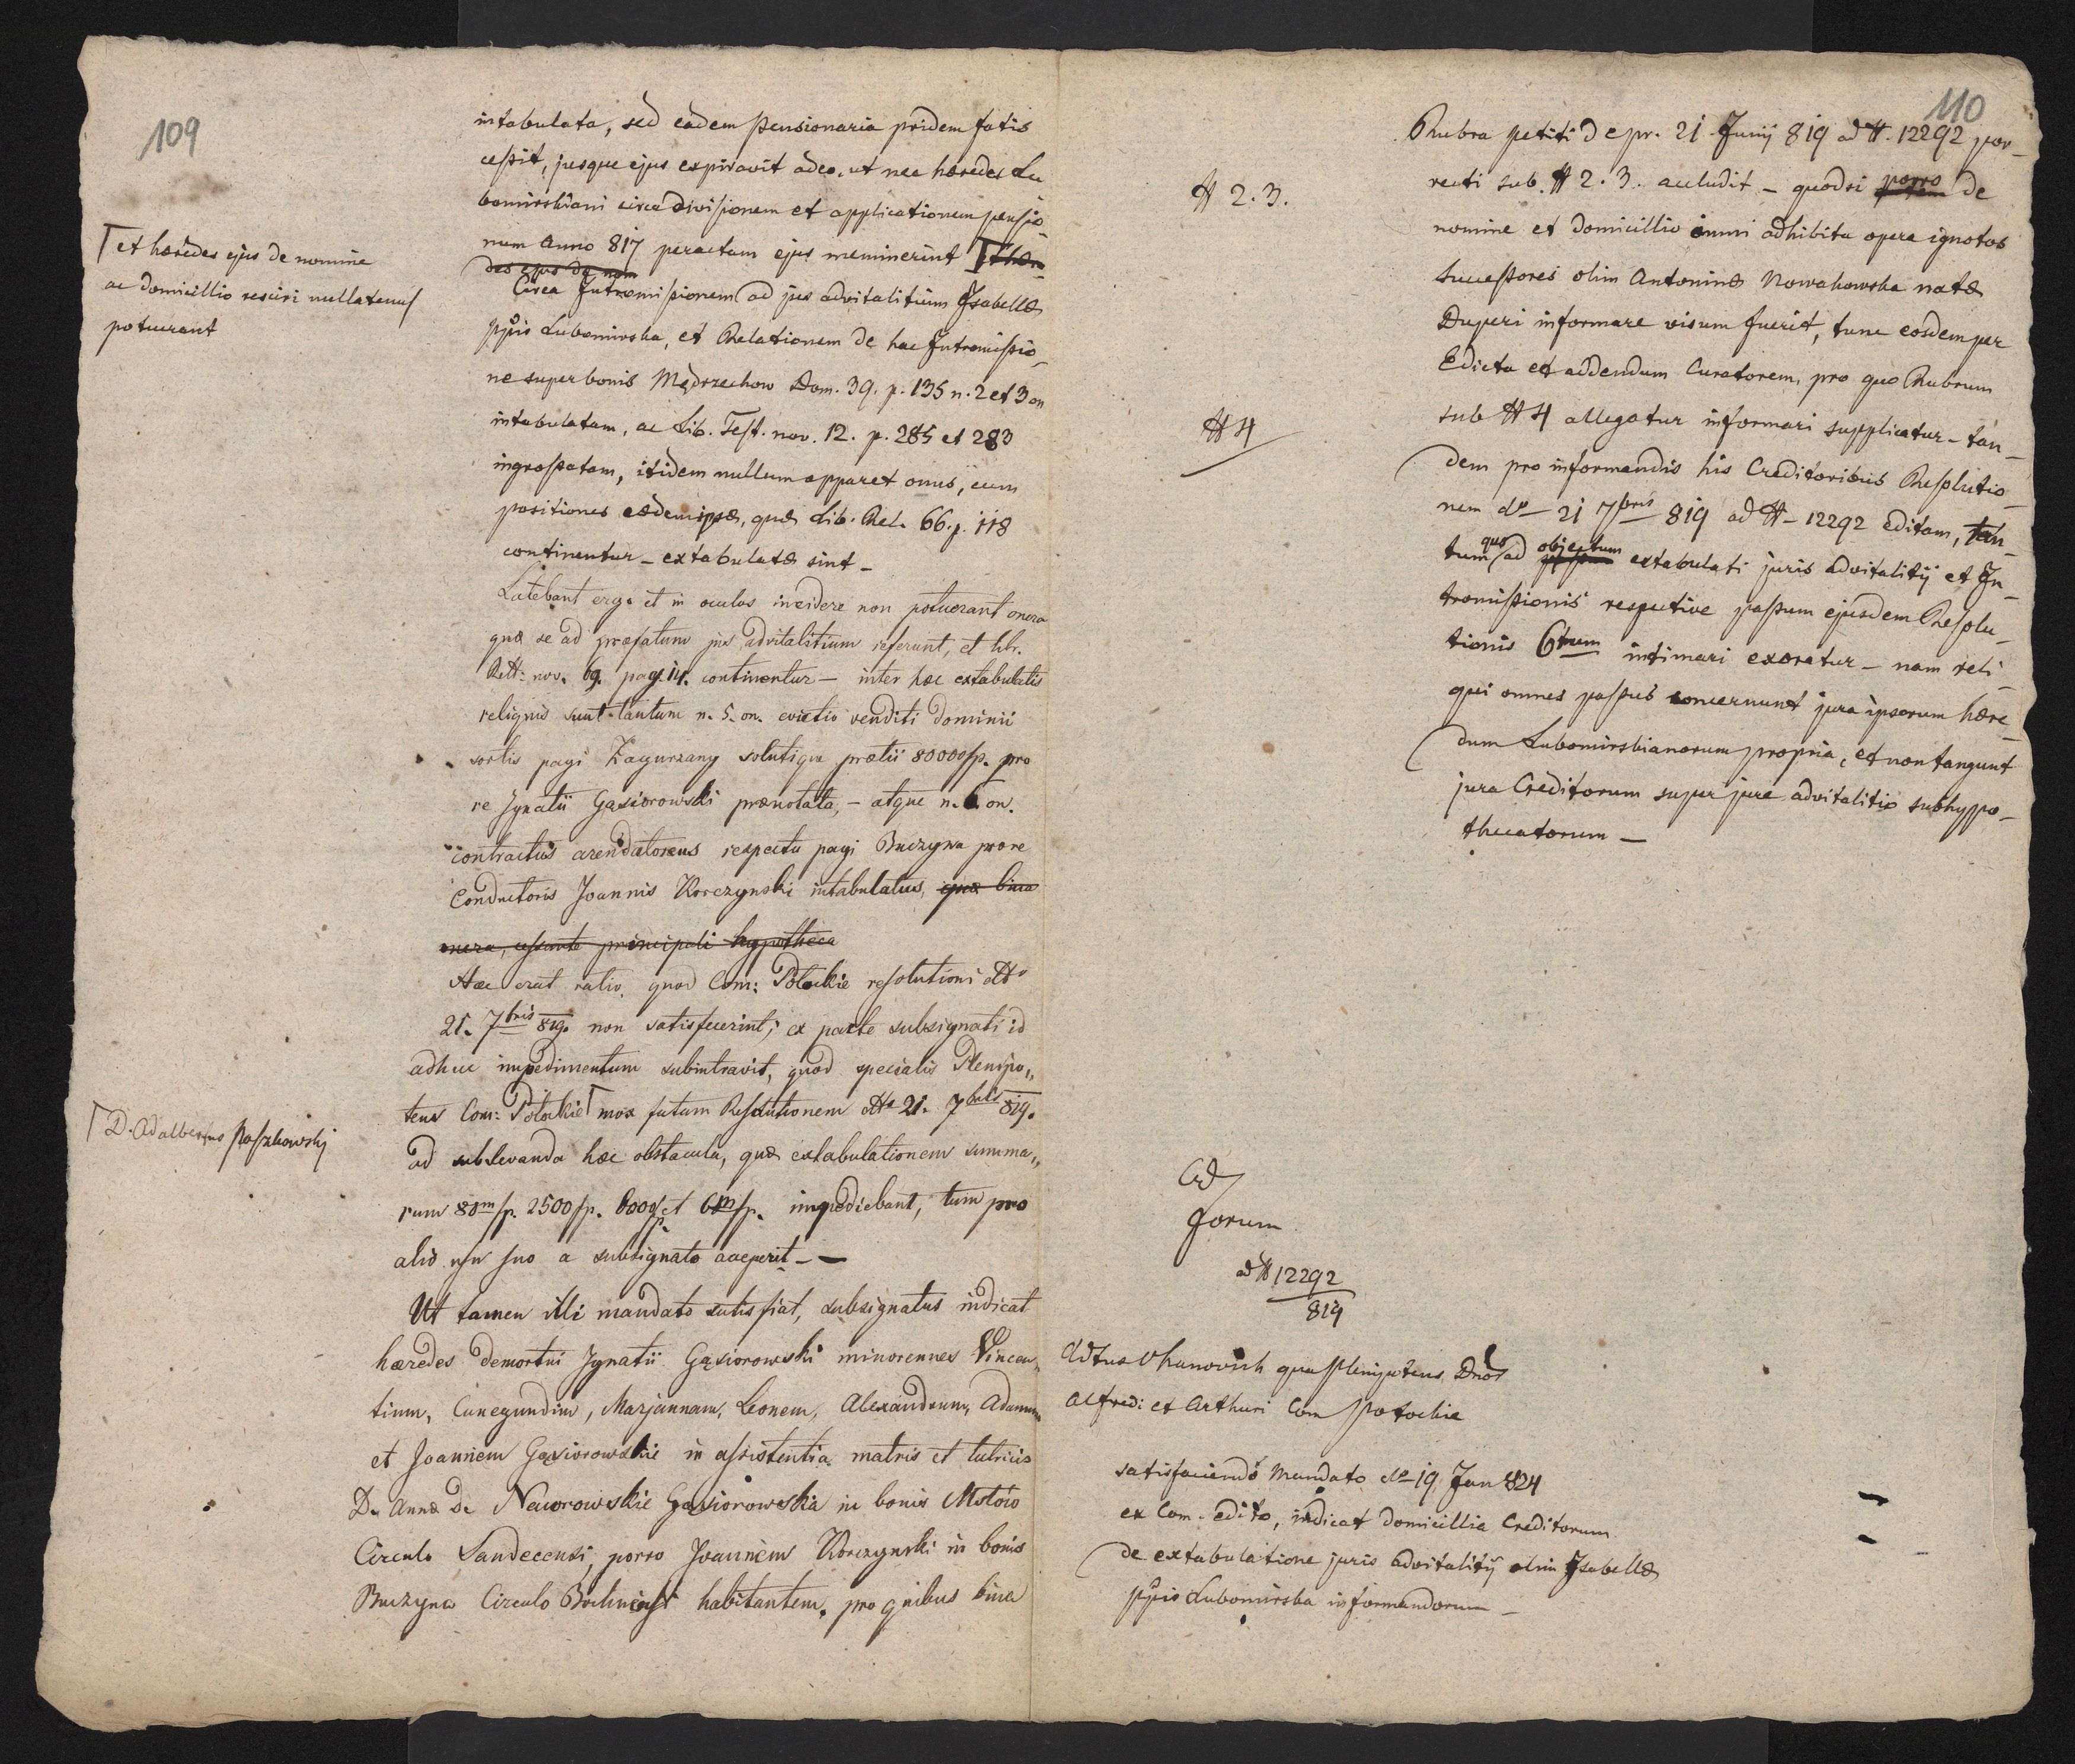 109
intabulata, sed eadem pensionaria pridem fatis
cessit, jusque ejus expiravit adeo, ut nec hæredes Lu
bomirskiani circa divisionem et applicationem pensio_
num Anno 817 peractam ejus meminerint
et hæredes ejus de nomine
ac domicillio resciri nullatenus
potuerant
Circa Intromissionem ad jus advitalitium Isabellæ
ppis Lubomirska, et Relationem de hac Intromissio_
ne super bonis Mędrzechow Dom. 39. p. 135 n. 2 et 3 on
intabulatam, ac Lib. Test. nov. 12. p. 285 et 283
ingrossatam, itidem nullum apparet onus, cum
positiones eædem ipsæ, quæ Lib. Rel. 66. p. 118
continentur _ extabulatæ sint _
Latebant ergo et in oculos incidere non potuerant onera
quæ se ad præfatum jus advitalitium referunt, et lib.
Rell: nov. 69. pag. 14. continentur — inter hæc extabulatis
reliquis sunt tantum n. 5. on. evictio venditi dominii
sortis pagi Zagurzany solutique pretii 80000 fp. pro
re Ignatii Gąsiorowski prænotata, — atque n. 6 on.
contractus arendatorius respectu pagi Buczyna pro re
Conductoris Joannis Korczynski intabulatus, quæ bina
onera, cessante principali hypotheca
Hæc erat ratio, quod Com: Potockie resolutioni ddo
21. 7bris 819. non satisfecerint; ex parte subsignati id
adhuc impedimentum subintravit, quod specialis Plenipo„
tens Com: Potockie mox fatam Resolutionem ddo 21. 7bris 819.
D. Adalbertus Paszkowski
ad sublevanda hæc obstacula, quæ extabulationem summa„
rum 80m fp. 2500 fp. 6000 fp. et 6m fp. impediebant, tum pro
alio usu suo a subsignato acceperit — —
Ut tamen illi mandato satisfiat, subsignatus indicat
hæredes demortui Ignatii Gąsiorowski minorennes Vincen„
tium, Cunegundim, Marjannam, Leonem, Alexandrum, Adamum
et Joannem Gąsiorowskie in assistentia matris et tutricis
D. Annæ de Naworowskie Gąsiorowska in bonis Mstów
Circulo Sandecensi, porro Joannem Korczynski in bonis
Buczyna Circulo Bochniensi habitantem, pro quibus bina
110
Rubra petiti de pr. 21 Junij 819 ad N. 12292 por_
N 2. 3.
recti sub. N 2. 3. accludit _ quodsi porro de
nomine et domicillio omni adhibita opera ignotos
Successores olim Antoninæ Nowakowska natæ
Duperi informare visum fuerit, tunc eosdem per
Edicta et addendum Curatorem, pro quo Rubrum
N 4
sub N 4 allegatur informari supplicatur _ tan_
dem pro informandis his Creditoribus Resolutio_
nem do 21 7bris 819 ad N 12292 editam, tan_
tum quo ad objectum extabulati juris advitalitij et In_
tromissionis respective passum ejusdem Resolu_
tionis 6tum intimari exoratur _ nam reli_
qui omnes passus concernunt jura ipsorum hære_
dum Lubomirskianorum propria, et non tangunt
jura Creditorum super jure advitalitio subhyppo_
thecatorum _
Ad
forum
ad N 12292
819
Adtus Uhanovich qua Plenipotens Dnor
Alfredi et Arthuri Com Potockie
satisfaciendo Mandato do 19 Jan 824
ex Com. edito, indicat domicillia Creditorum
de extabulatione juris advitalitij olim Isabellæ
ppis Lubomirska informandorum _